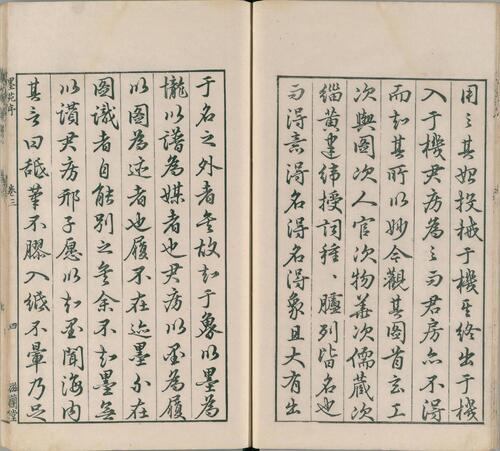 用之其始投械于機其終出于機
入于機君房為之而君房亦不得
而知其所以妙今觀其圖首玄工
次輿圖次人官次物華次儒藏次
緇黃建緯授詞種〻臚列皆名也
而得意得名得象且大有出
于名之外者矣故知于魯以墨為
隴以譜為媒者也君房以墨為履
以圖為迹者也履不在迹墨不在
圖識者自能別之矣余不知墨無
以讚君房邢子愿以知墨聞海内
其言曰舐筆不膠入紙不暈乃足
墨苑序 卷三 四 滋蘭堂